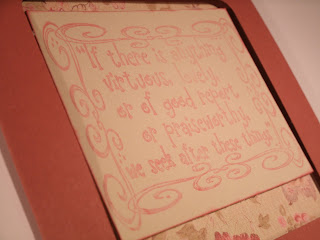 "If there is anything
virtuous, lovely,
or of good report
or praiseworthy,
we seek after these things"